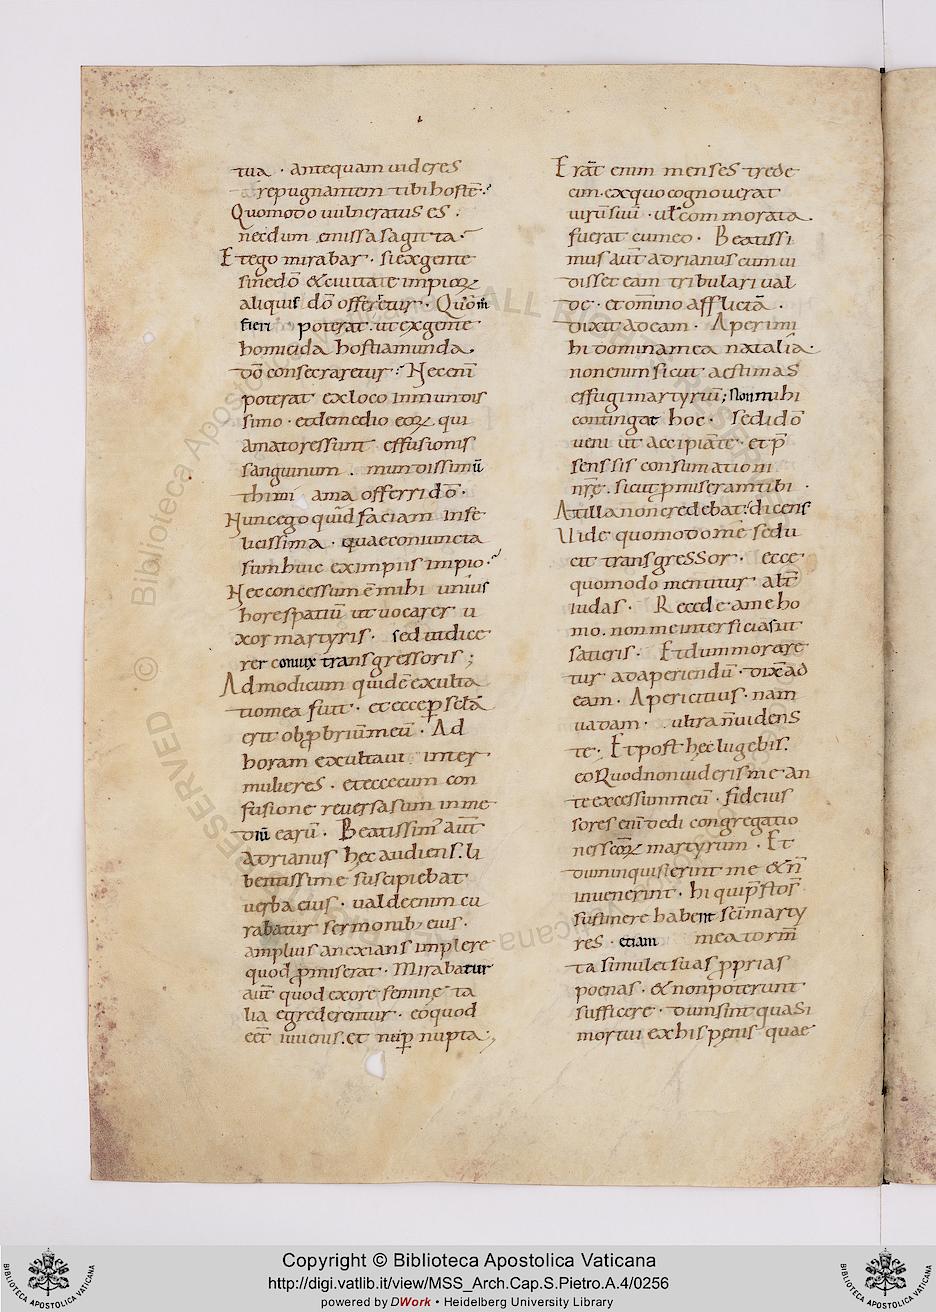 tua · antequam uideres
repugnantem tibi hostē·?
Quomodo uulneratus es ·
necdum emissa sagitta ·
Et ego mirabar · si ex gente
sine dō & ciuitate impioꝝ
aliquis dō offerretur · Quom̄
fieri poterat · ut ex gente
homicida hostia munda ·
dō consecraretur ·? Nec eni
poterat ex loco inmundis
simo · et de medio eoꝝ qui
amatores sunt effusionis
sanguinum · mundissimū
thimiama offerri dō ·
Nunc ego quid faciam infe
licissima · quae coniuncta
sum huic ex impiis impio ·
Nec concessum ē mihi unius
hore spatiū ut uocarer u
xor martyris · sed ut dice
rer coniux transgressoris ;
Ad modicum quidē exulta
tio mea fuit · et ecce ꝑ sclā
erit obprobriū meū · Ad
horam exultaui inter
mulieres · et ecce cum con
fusione reuersa sum in me
diū earū · Beatissim' aūt
Adrianus hec audiens · li
bentissime suscipiebat
uerba eius · ualde enim cu
rabatur sermonib; eius ·
amplius anexians implere
quod ꝓmiserat · Mirabatur
aūt quod ex ore feminę ta
lia egrederentur · eo quod
eēt iuuenis · et nuꝑ nupta ;
Erāt enim menses trede
cim · ex quo cognouerat
uirū suū · ul̄ commorata
fuerat cum eo · Beatissi
mus aūt adrianus cum ui
disset eam tribulari ual
de · et omino afflictā ·
dixit ad eam · Aperi mi
hi domina mea natalia ·
non enim sicut aestimas
effugi martyriū ; Non mihi
contingat hoc · Sed idō
ueni ut accipiāte · et p̄
sens sis consumationi
nr̄ę · sicut ꝓmiseram tibi ·
At illa non credebat · dicens
Uide quomodo me sedu
cit transgressor · ecce
quomodo mentitur alt̄
iudas · Recede a me ho
mo · non me interficias ut
satieris · Et dum morare
tur ad aperiendū · dix̄ ad
eam · Aperi citius · nam
uadam · ultra n̄ uidens
te · Et post hec lugebis ·
eo Quod non uideris me an
te excessum meū · fideius
sores eni dedi congregatio
nes scōꝝ martyrum · Et
dum inquisierint me & n̄
inuenerint · hi quip̄stos
sustinere habent sc̄i marty
res · etiam mea torm̄
ta simul et suas ꝓprias
poenas · & non poterunt
sufficere · dum sint quasi
mortui ex his pęnis quae
Copyright © Biblioteca Apostolica Vaticana
http://digi.vatlib.it/view/MSS_Arch.Cap.S.Pietro.A.4/0256
powered by DWork • Heidelberg University Library